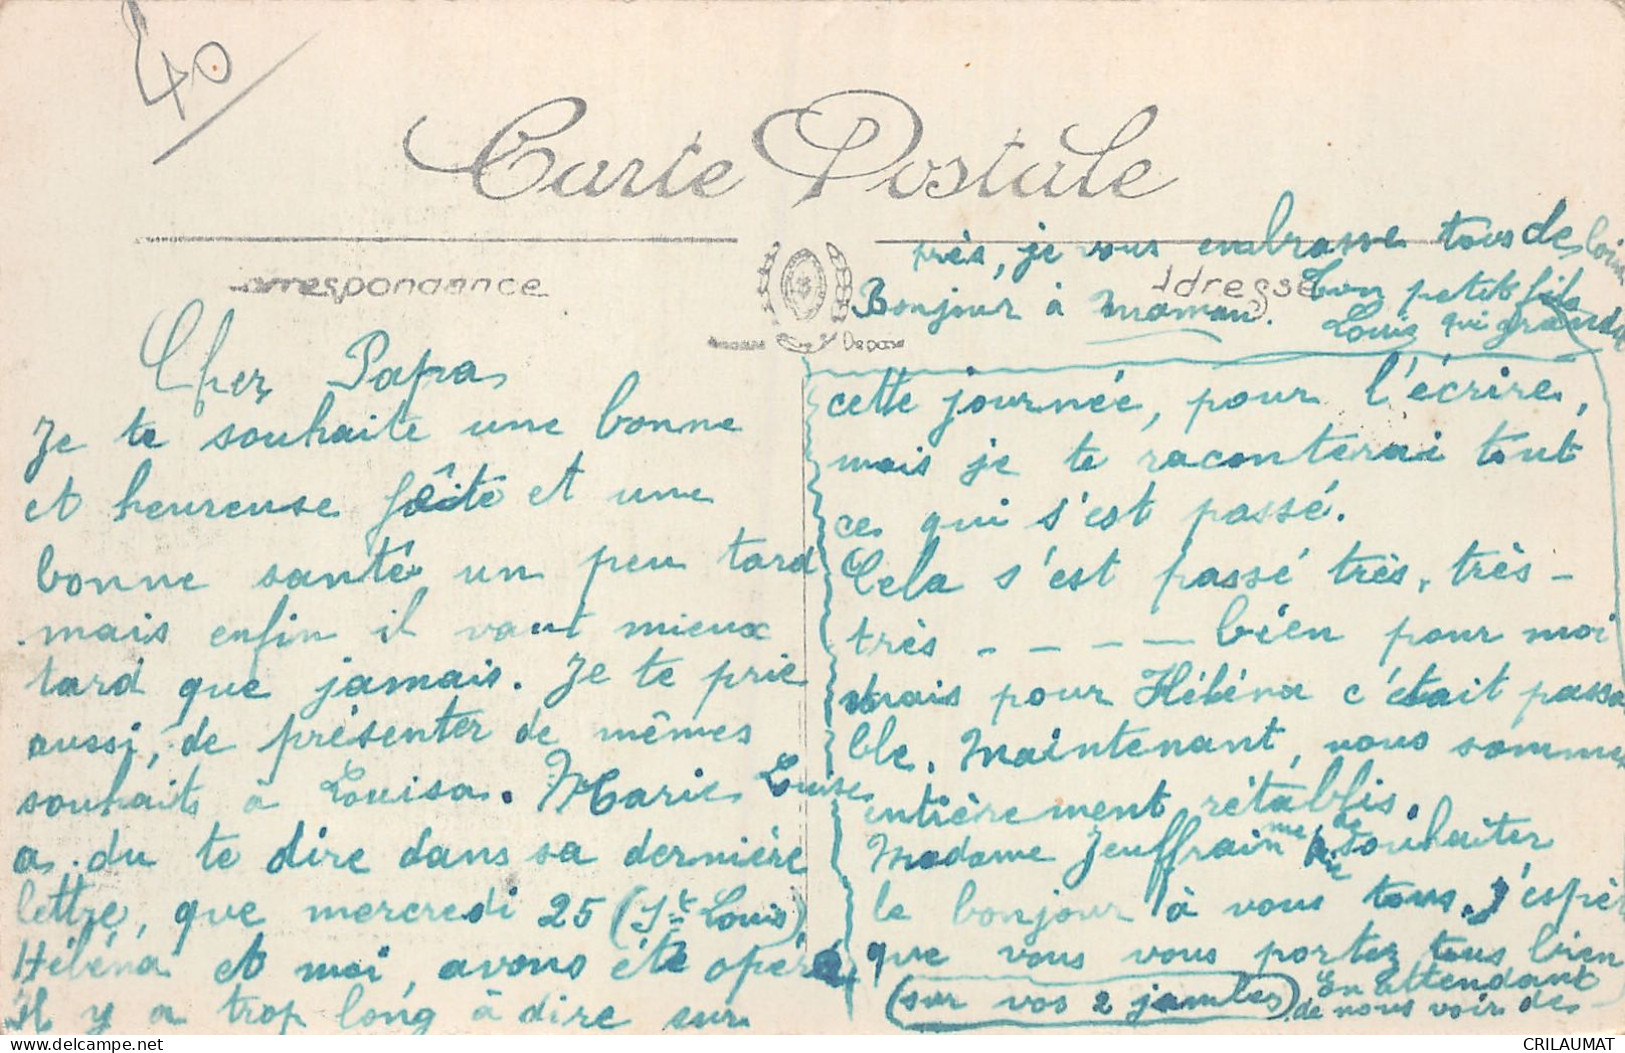 40
Carte Postale
Correspondance
Adresse
Cher Papa
Je te souhaite une bonne
et heureuse fête et une
bonne santé un peu tard
mais enfin il vaut mieux
tard que jamais. Je te prie
aussi, de présenter de mêmes
souhaits à Louisa. Marie Louise
a du te dire dans sa dernière
lettre, que mercredi 25 (St Louis)
Héléna et moi, avons été opéré
Il y a trop long à dire sur
cette journée, pour l'écrire,
mais je te raconterai tout
ce qui s'est passé.
Cela s'est passé très, très-
très - - - - bien pour moi
mais pour Héléna c'était passa
ble. Maintenant, nous sommes
entièrement rétablis.
Madame Jeuffrain me de souhaiter
le bonjour à vous tous. J'espère
que vous vous portez tous bien
(sur vos 2 jambes). En attendant
de nous voir de
près, je vous embrasse tous de loin
Bonjour à maman. Ton petit fils
Louis qui grandit
CRILAUMAT